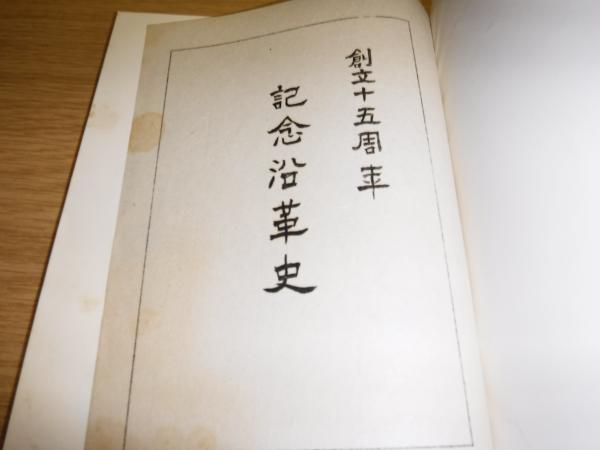 創立十五周年
記念沿革史